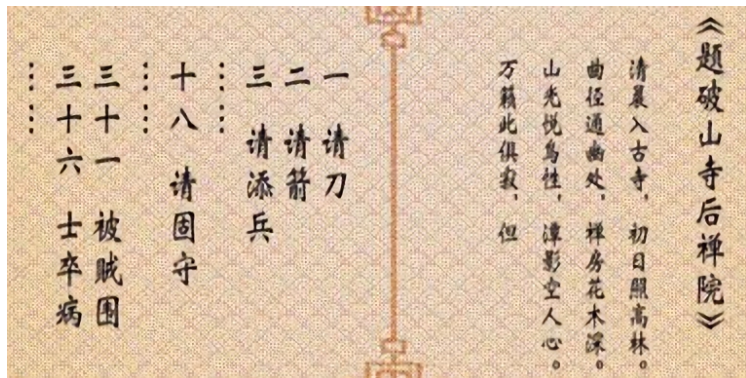 《题破山寺后禅院》
清晨入古寺，初日照高林。
曲径通幽处，禅房花木深。
山光悦鸟性，潭影空人心。
万籁此俱寂，但
一 请刀
二 请箭
三 请添兵
……
十八 请固守
……
三十一 被贼围
三十六 士卒病
……